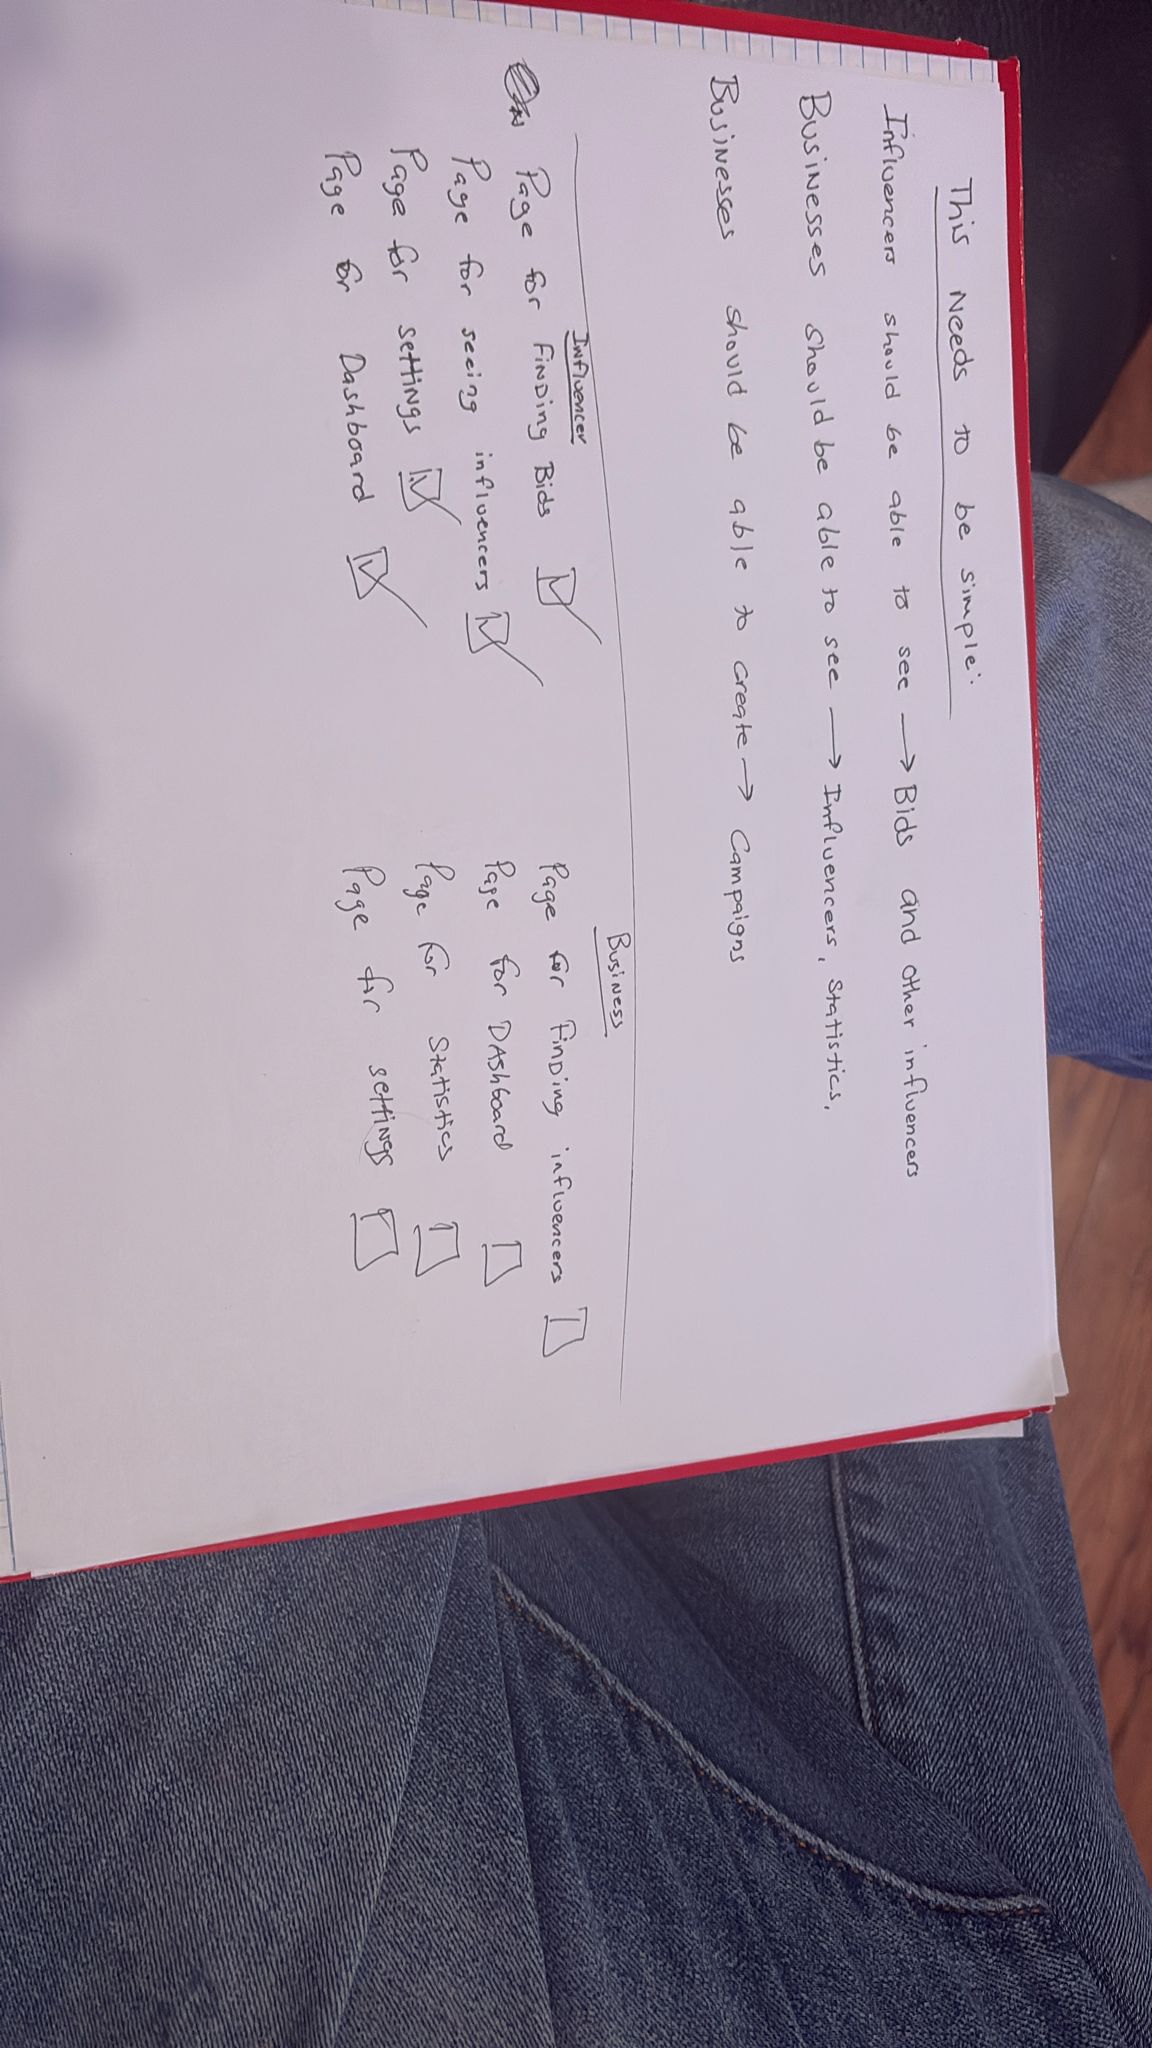 This Needs to be simple:
Influencers should be able to see → Bids and other influencers
Businesses should be able to see → Influencers, Statistics,
Businesses should be able to create → Campaigns
Influencer
Page for Finding Bids
Page for seeing influencers
Page for settings
Page for Dashboard
Business
Page for Finding influencers
Page for DAshboard
Page for Statistics
Page for settings